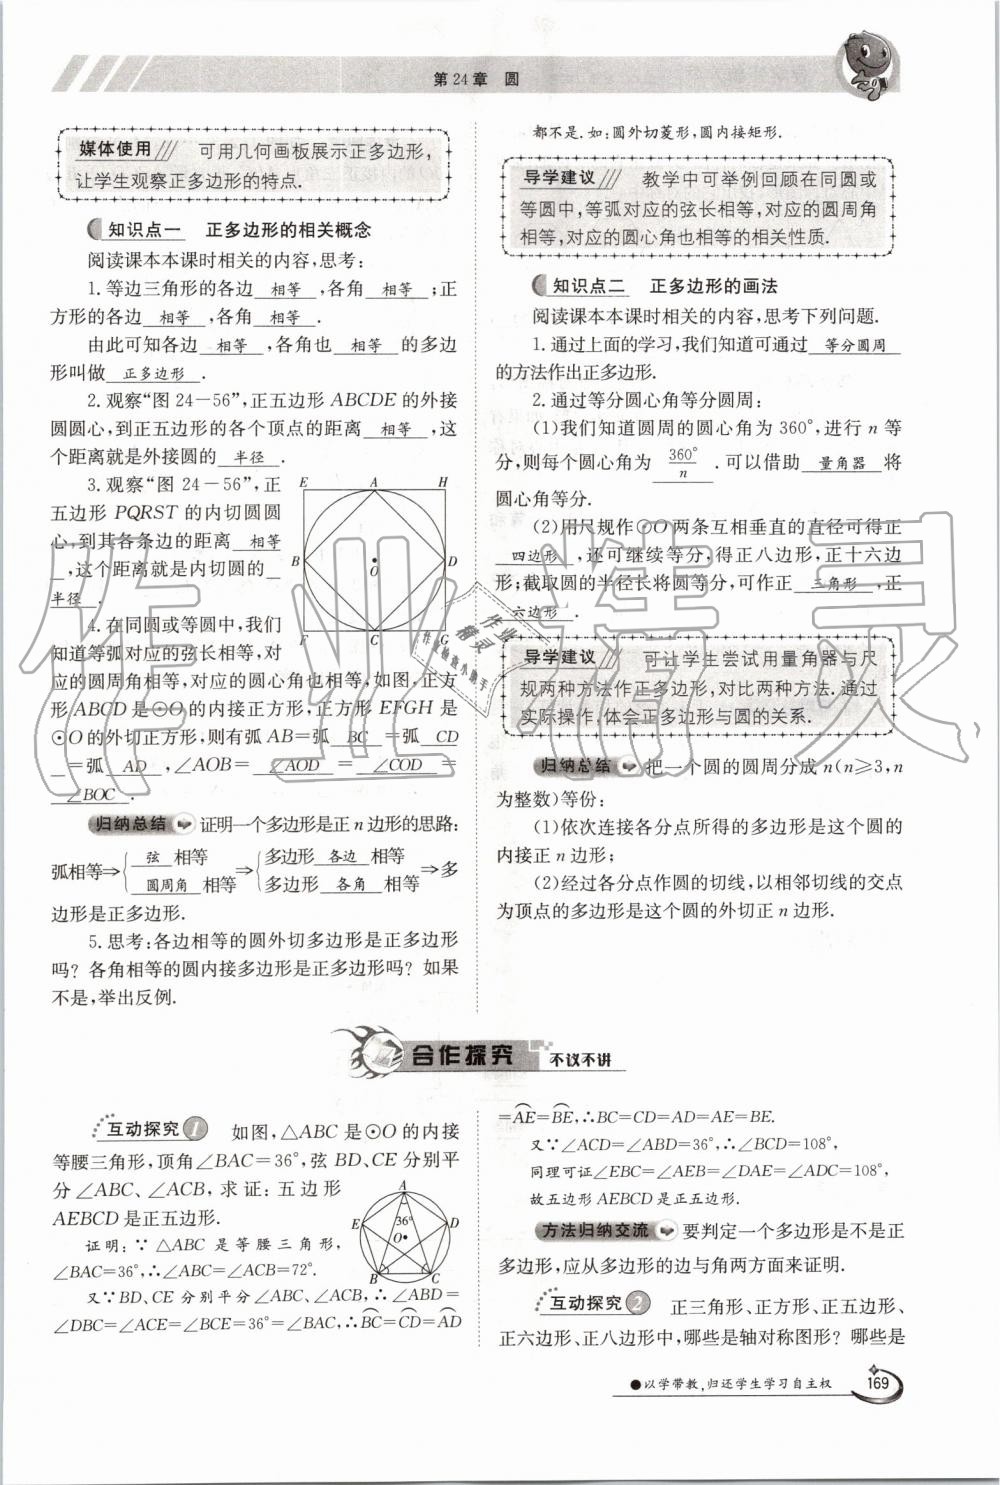 第24章 圆
媒体使用 可用几何画板展示正多边形,
让学生观察正多边形的特点.
知识点一 正多边形的相关概念
阅读课本本课时相关的内容,思考:
1. 等边三角形的各边 相等 ,各角 相等 ;正
方形的各边 相等 ,各角 相等 .
由此可知各边 相等 ,各角也 相等 的多边
形叫做 正多边形 .
2. 观察“图 24-56”,正五边形 ABCDE 的外接
圆圆心,到正五边形的各个顶点的距离 相等 ,这
个距离就是外接圆的 半径 .
3. 观察“图 24-56”,正
五边形 PQRST 的内切圆圆
心,到其各条边的距离 相等
,这个距离就是内切圆的
半径 .
4. 在同圆或等圆中,我们
知道等弧对应的弦长相等,对
应的圆周角相等,对应的圆心角也相等,如图,正方
形 ABCD 是⊙O 的内接正方形,正方形 EFGH 是
⊙O 的外切正方形,则有弧 AB=弧 BC =弧 CD
=弧 AD ,∠AOB= ∠AOD = ∠COD =
∠BOC .
E A H
B O D
F C G
归纳总结 证明一个多边形是正 n 边形的思路:
弧相等⇒{ 弦 相等 圆周角 相等 ⇒{多边形 各边 相等 多边形 各角 相等 ⇒多
边形是正多边形.
5. 思考:各边相等的圆外切多边形是正多边形
吗? 各角相等的圆内接多边形是正多边形吗? 如果
不是,举出反例.
都不是.如:圆外切菱形,圆内接矩形.
导学建议 教学中可举例回顾在同圆或
等圆中,等弧对应的弦长相等,对应的圆周角
相等,对应的圆心角也相等的相关性质.
知识点二 正多边形的画法
阅读课本本课时相关的内容,思考下列问题.
1. 通过上面的学习,我们知道可通过 等分圆周
的方法作出正多边形.
2. 通过等分圆心角等分圆周:
(1)我们知道圆周的圆心角为 360°,进行 n 等
分,则每个圆心角为 360°/n .可以借助 量角器 将
圆心角等分.
(2)用尺规作⊙O 两条互相垂直的直径可得正
四边形 ,还可继续等分,得正八边形,正十六边
形;截取圆的半径长将圆等分,可作正 三角形 ,正
六边形 .
导学建议 可让学生尝试用量角器与尺
规两种方法作正多边形,对比两种方法.通过
实际操作,体会正多边形与圆的关系.
归纳总结 把一个圆的圆周分成 n(n≥3,n
为整数)等份:
(1)依次连接各分点所得的多边形是这个圆的
内接正 n 边形;
(2)经过各分点作圆的切线,以相邻切线的交点
为顶点的多边形是这个圆的外切正 n 边形.
合作探究 不议不讲
互动探究 1 如图,△ABC 是⊙O 的内接
等腰三角形,顶角∠BAC=36°,弦 BD、CE 分别平
分∠ABC、∠ACB,求证:五边形
AEBCD 是正五边形.
证明:∵△ABC 是等腰三角形,
∠BAC=36°,∴∠ABC=∠ACB=72°.
A
E 36° D
O
B C
又∵BD、CE 分别平分∠ABC、∠ACB,∴∠ABD=
∠DBC=∠ACE=∠BCE=36°=∠BAC,∴BC=CD=AD
=AE=BE,∴BC=CD=AD=AE=BE.
又∵∠ACD=∠ABD=36°,∴∠BCD=108°,
同理可证∠EBC=∠AEB=∠DAE=∠ADC=108°,
故五边形 AEBCD 是正五边形.
方法归纳交流 要判定一个多边形是不是正
多边形,应从多边形的边与角两方面来证明.
互动探究 2 正三角形、正方形、正五边形、
正六边形、正八边形中,哪些是轴对称图形? 哪些是
●以学带教,归还学生学习自主权
169
作业精灵
作业精灵
作业检查小助手